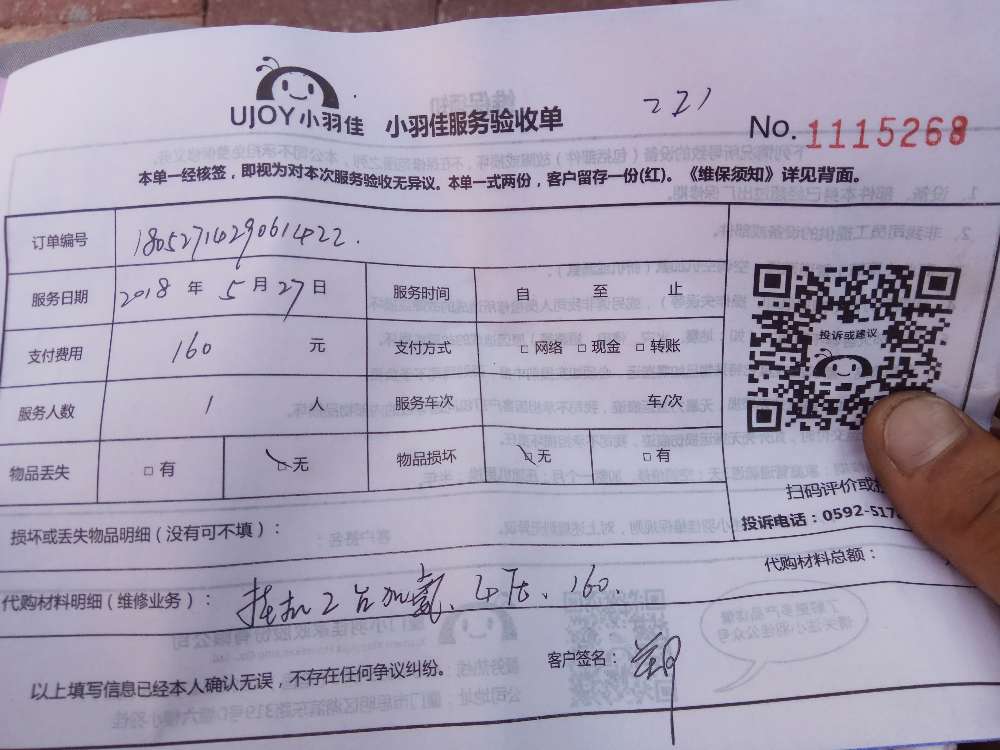 UJOY小羽佳 小羽佳服务验收单
221
No. 1115268
本单一经核签，即视为对本次服务验收无异议。本单一式两份，客户留存一份(红)。《维保须知》详见背面。
订单编号 1805271429061422.
服务日期 2018 年 5 月 27 日 服务时间 自 至 止
支付费用 160 元 支付方式 □ 网络 □ 现金 □ 转账
投诉或建议
服务人数 1 人 服务车次 车/次
物品丢失 □ 有 □ 无 物品损坏 □ 无 □ 有
扫码评价或
投诉电话：0592-517
损坏或丢失物品明细（没有可不填）：
代购材料总额：
代购材料明细（维修业务）： 挂机2台加氟、160.
以上填写信息已经本人确认无误，不存在任何争议纠纷。
客户签名：